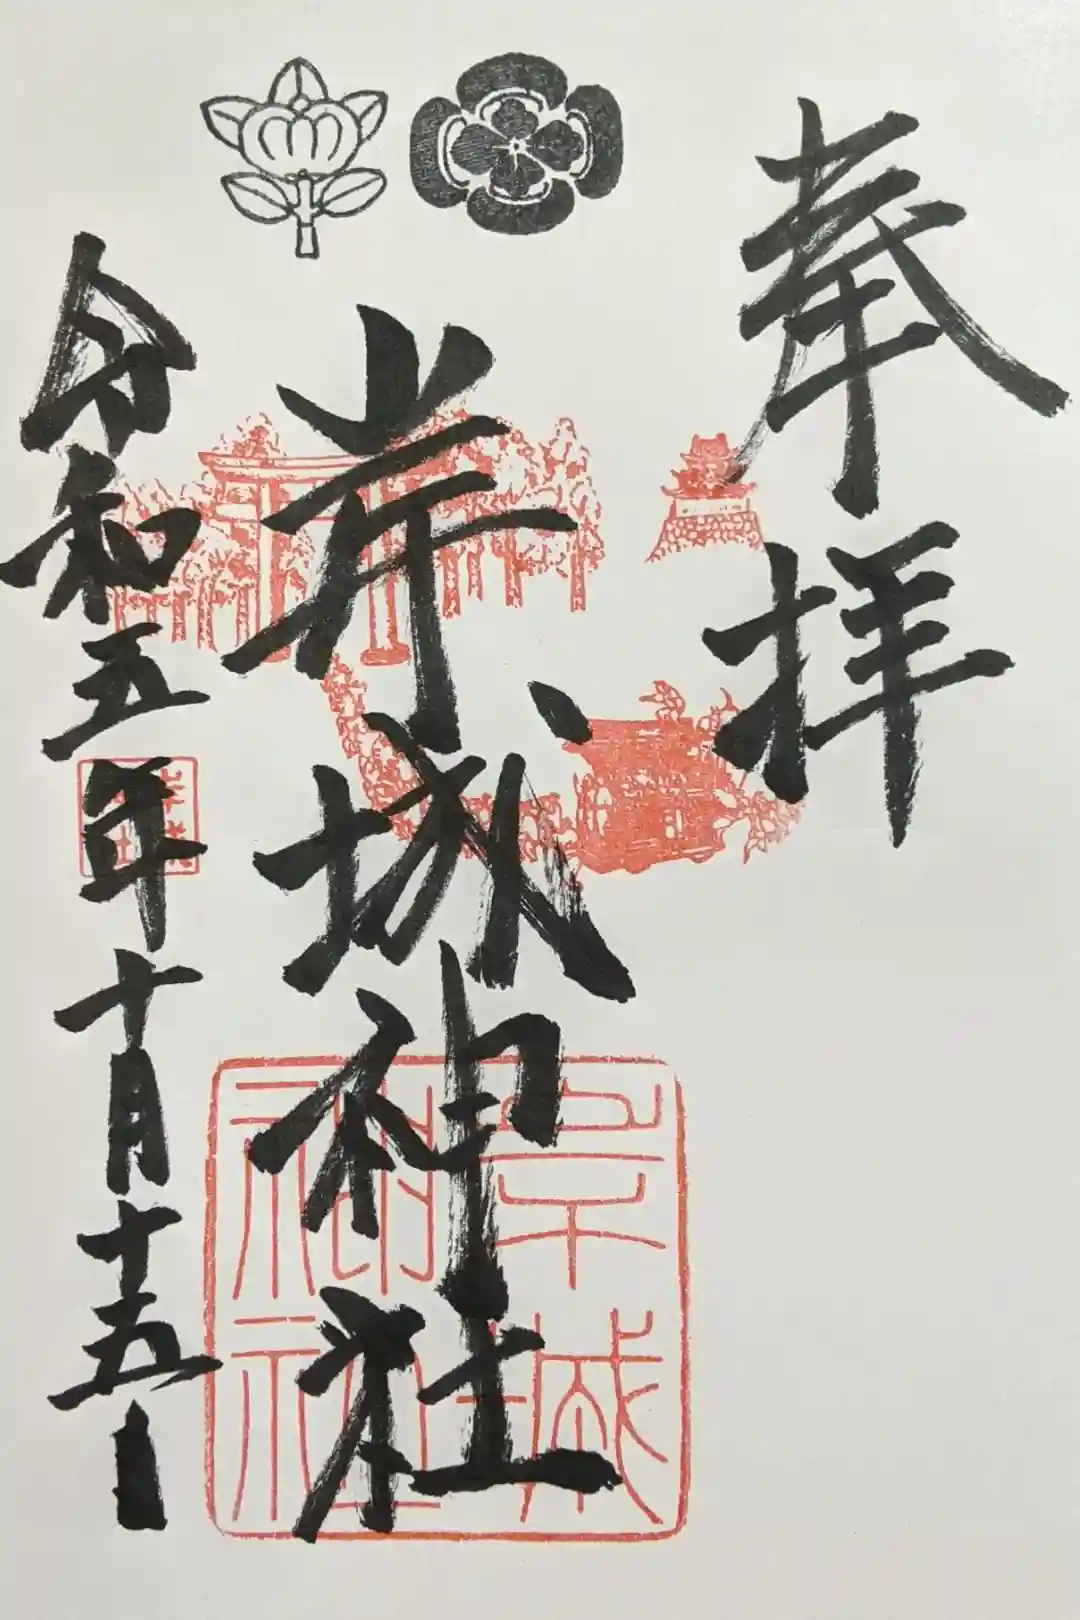 奉拝
岸城神社
令和五年十月十五日
岸城神社